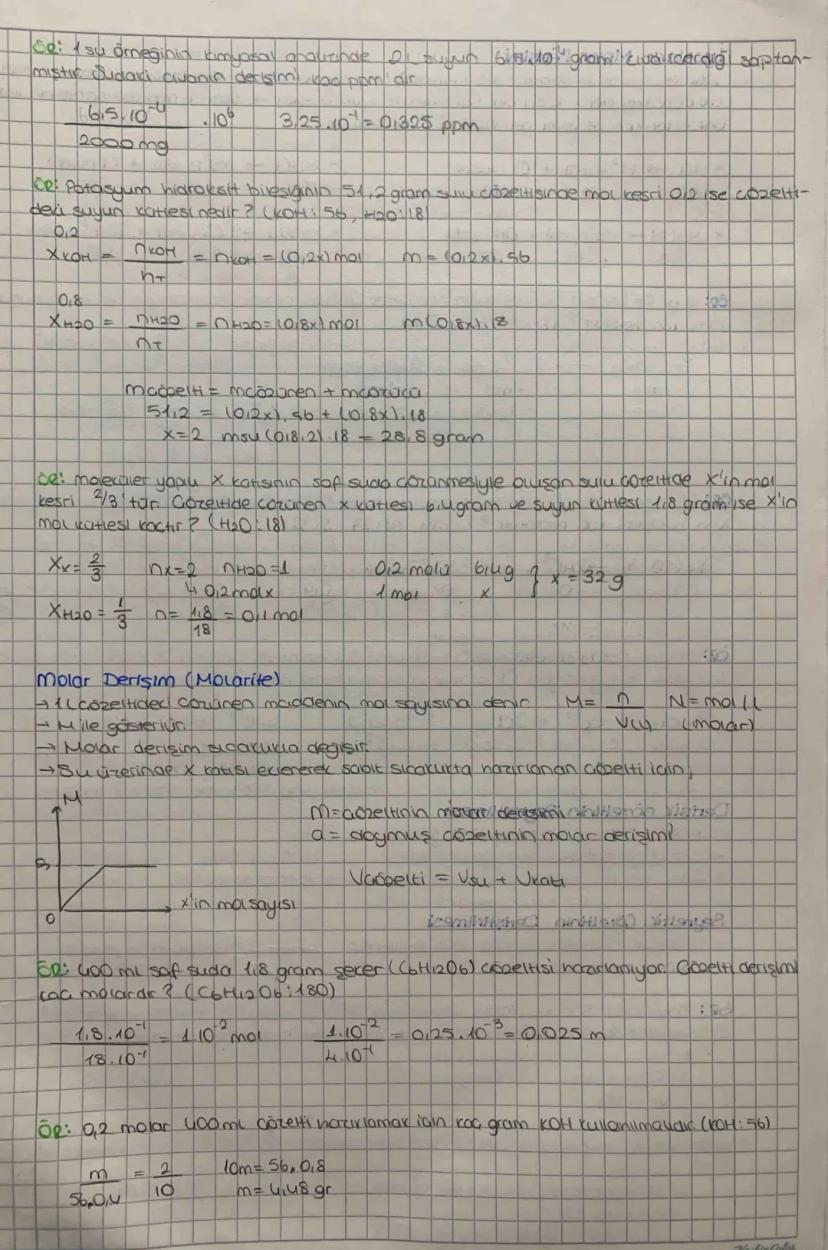 ör: 1 su örneğinin kimyasal analizinde 2L suyun 6,5.10⁻⁴ gram civa içerdiği saptan-
mıştır. Sudaki civanın derişimi kaç ppm'dir
6,5.10⁻⁴ / 2000mg .10⁶ 3,25.10⁻¹ = 0,325 ppm
ör: Potasyum hidroksit bileşiğinin 51,2 gram sulu çözeltisinde mol kesri 0,2 ise çözelti-
deki suyun kütlesi nedir? (KOH: 56, H2O:18)
0,2
XKOH = nKOH / nT = nKOH = (0,2x) mol m = (0,2x).56
0,8
XH2O = nH2O / nT = nH2O = (0,8x) mol m(0,8x).18
mçözelti = mçözünen + mçözücü
51,2 = (0,2x).56 + (0,8x).18
x=2 msu (0,8.2) 18 = 28,8 gram
ör: moleküler yapılı X katısının saf suda çözünmesiyle oluşan sulu çözeltide X'in mol
kesri 2/3'tür. Çözeltide çözünen x kütlesi 6,4 gram ve suyun kütlesi 1,8 gram ise X'in
mol kütlesi kaçtır? (H2O:18)
Xx = 2/3 nx=2 nH2O=1 0,2 molü 6,4g } x = 32 g
↳ 0,2 molx 1 mol x
XH2O = 1/3 n = 1,8 / 18 = 0,1 mol
Molar Derişim (Molarite)
→ 1L çözeltideki çözünen maddenin mol sayısına denir M = n / V(L) N = mol/L
→ M ile gösterilir. (molar)
→ Molar derişim sıcaklıkla değişir.
→ Su üzerine X katısı eklenerek sabit sıcaklıkta hazırlanan çözelti için;
M
m = çözeltinin molar derişimi
a = doymuş çözeltinin molar derişimi
a
Vçözelti = Vsu + Vkatı
0 x'in mol sayısı
ör: 400 mL saf suda 1,8 gram şeker (C6H12O6) çözeltisi hazırlanıyor. Çözelti derişimi
kaç molardır? (C6H12O6:180)
1,8.10⁻¹ / 18.10⁻¹ = 1.10⁻² mol 1.10⁻² / 4.10⁻¹ = 0,25.10⁻³ = 0,025 m
ör: 0,2 molar 400 mL çözelti hazırlamak için kaç gram KOH kullanılmalıdır. (KOH: 56)
m / 56.0,4 = 2 / 10 10m = 56.0,8
m = 4,48 gr